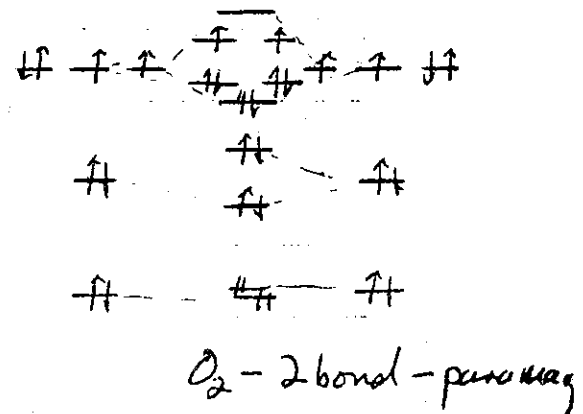 O₂ - 2 bond - paramag